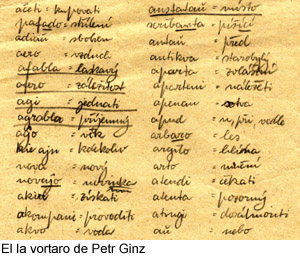 aĉeti = kupovati
pafado = střílení
adiaŭ = sbohem
aero = vzduch
afabla = laskavý
afero = záležitost
agi = jednati
agrabla = příjemný
aĝo = věk
kie ajn = kdekoliv
nova = nový
novaĵo = novinka
akiri = získati
akompani = provoditi
akvo = voda
anstataŭ = místo
skribanta = píšící
antaŭ = před
antikva = starobylý
aparta = zvláštní
aparteni = náležeti
apenaŭ = sotva
apud = u, při, vedle
arbaro = les
argilo = hlína
arto = umění
atendi = čekati
atenta = pozorný
atingi = dosáhnouti
aŭ = nebo
El la vortaro de Petr Ginz